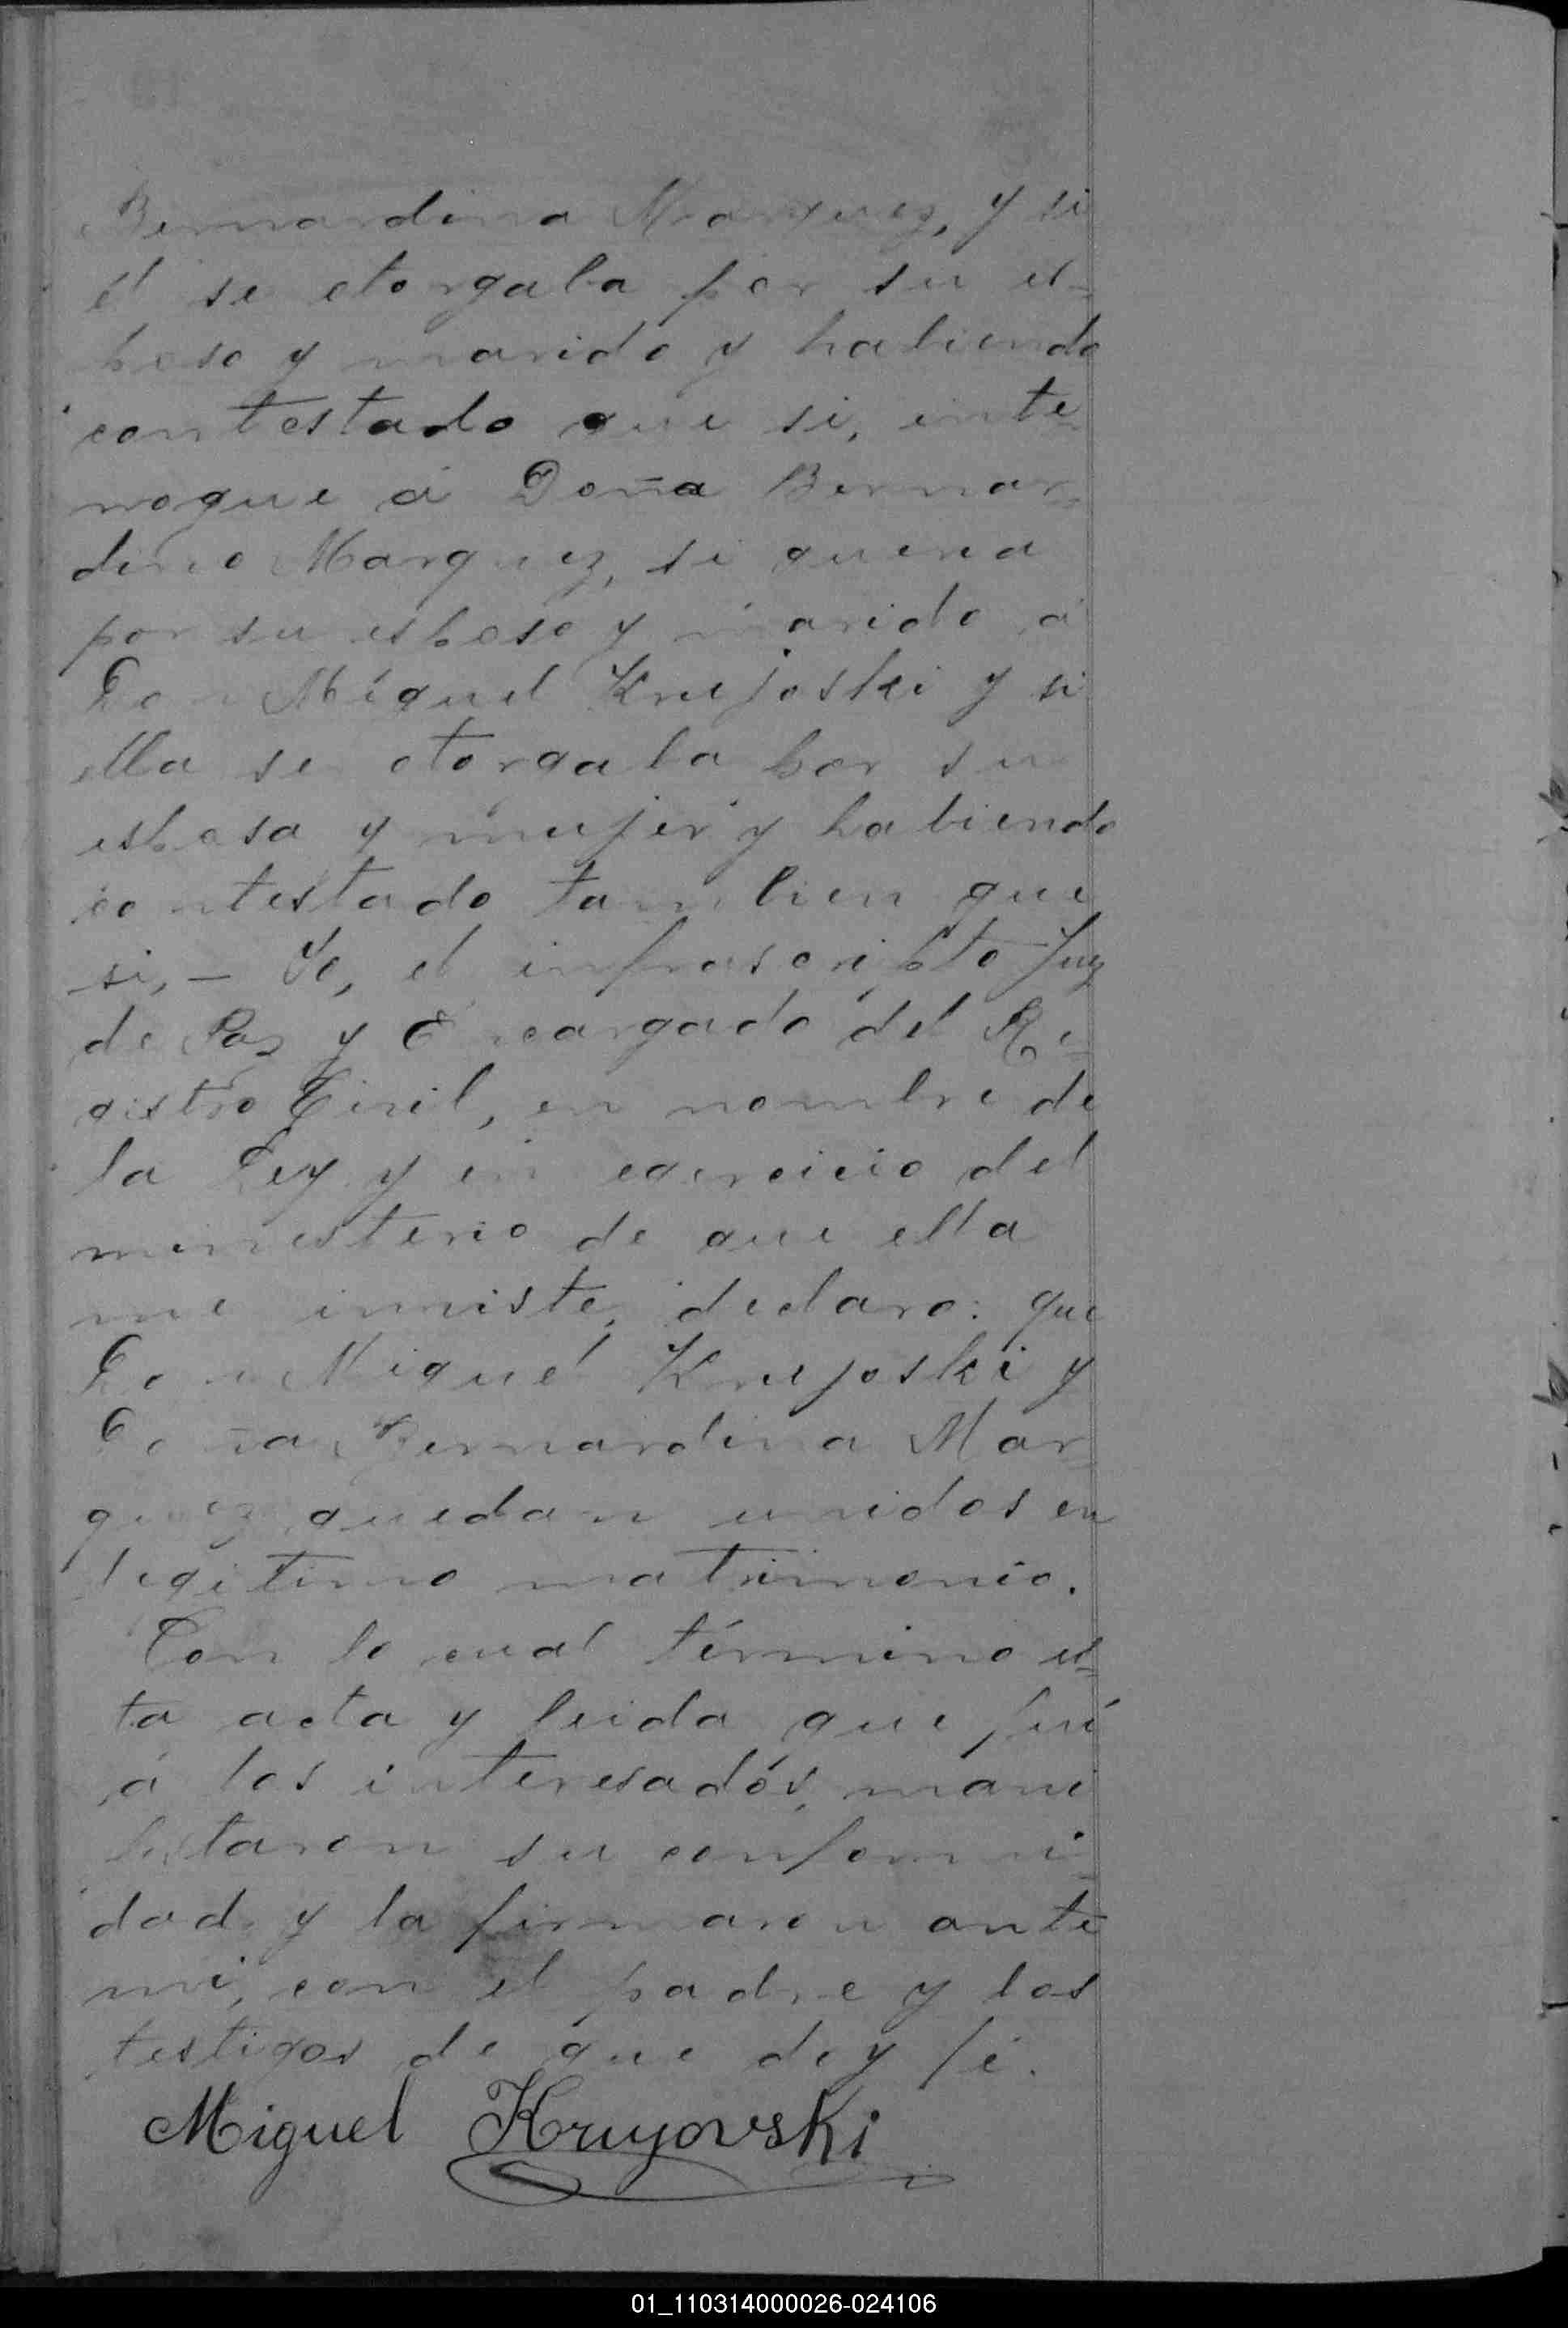 Bernardina Marquez, y si
él se otorgaba por su es-
poso y marido y habiendo
contestado que si, inte-
rrogue á Doña Bernar-
dina Marquez, si queria
por su esposo y marido á
Don Miguel Krujoski y si
ella se otorgaba por su
esposa y mujer y habiendo
contestado tambien que
si, — Yo, el infrascripto Juez
de Paz y Encargado del Re-
gistro Civil, en nombre de
la Ley y en egercicio del
ministerio de que ella
me inviste, declaro: que
Don Miguel Krujoski y
Doña Bernardina Mar-
quez quedan unidos en
legitimo matrimonio.
Con lo cual término es-
ta acta y leida que fué
á los interesados, mani
festaron su conformi-
dad y la firmaron ante
mi, con el padre y los
testigos de que doy fé.
Miguel Kruyovski
01_110314000026-024106